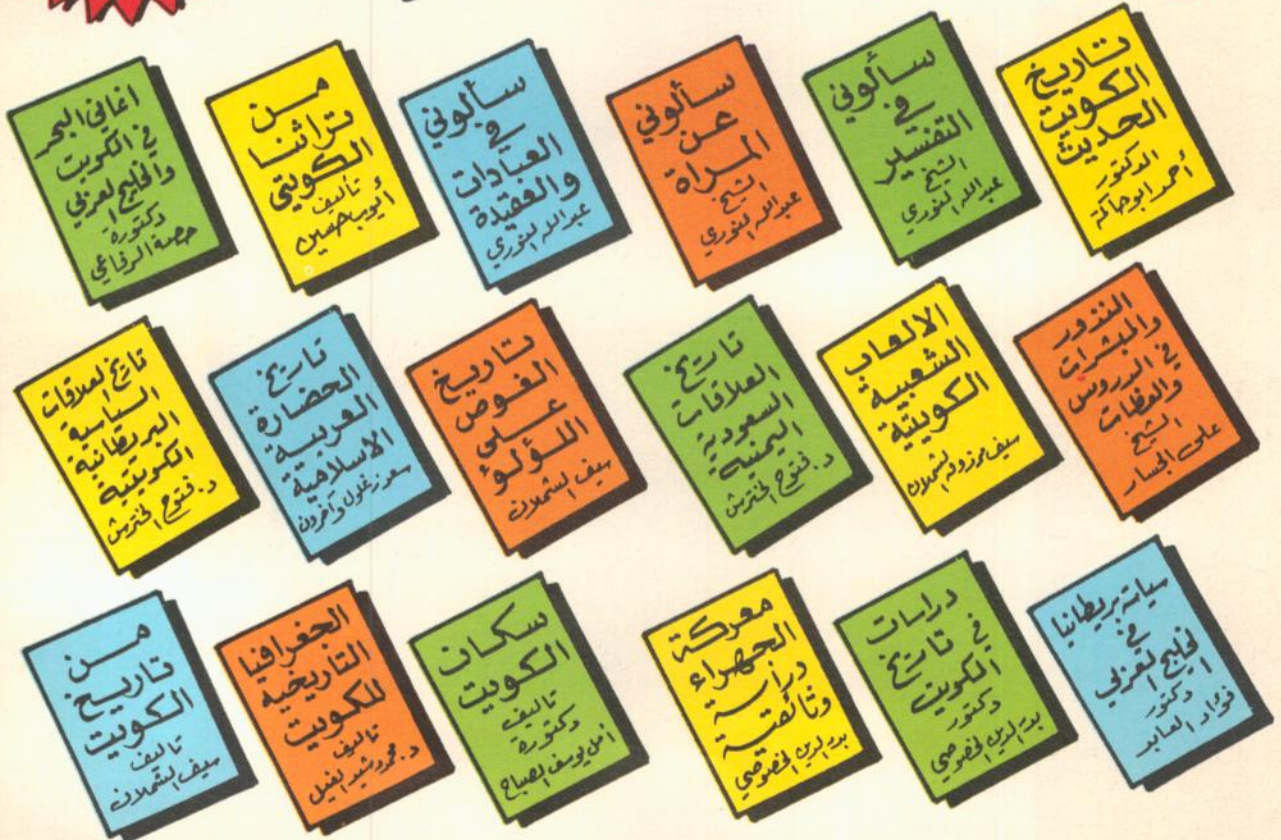 تاريخ
الكويت
الحديث
الدكتور
أحمد ابو حاكمة
سألوني
في
التفسير
الشيخ
عبدالله النوري
سألوني
عن
المرأة
الشيخ
عبدالله النوري
سألوني
في
العبادات
والعقيدة
عبدالله النوري
من
تراثنا
الكويتي
تأليف
أيوب حسين
اغاني البحر
في الكويت
والخليج العربي
دكتورة
حصة الرفاعي
النذور
والمبشرات
في الدروس
والعظات
الشيخ
علي الجسار
الالعاب
الشعبية
الكويتية
سيف مرزوق الشملان
تاريخ
العلاقات
السعودية
اليمنية
د. فتوح الخترش
تاريخ
الغوص
على
اللؤلؤ
سيف الشملان
تاريخ
الحضارة
العربية
الاسلامية
سعد زغلول وآخرون
تاريخ العلاقات
السياسية
البريطانية
الكويتية
د. فتوح الخترش
سياسة بريطانيا
في
الخليج العربي
دكتور
فؤاد العابد
دراسات
في
تاريخ
الكويت
دكتور
بدر الدين الخصوصي
معركة
الجهراء
دراسة
وثائقية
بدر الدين الخصوصي
سكان
الكويت
تأليف
دكتورة
امل يوسف الصباح
الجغرافيا
التاريخية
للكويت
تأليف
د. محمد رشيد الفيل
من
تاريخ
الكويت
تاليف
سيف الشملان